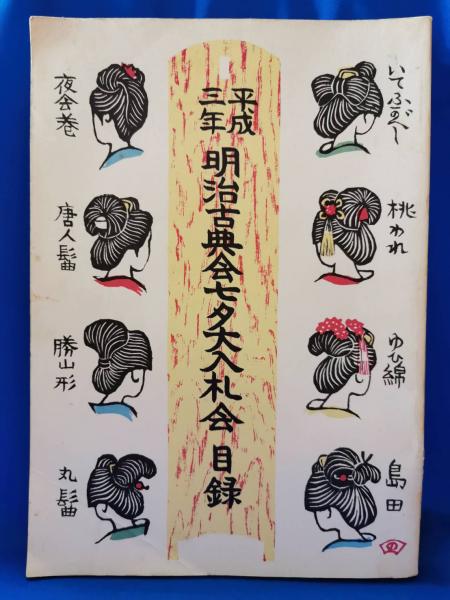 いてふがへし
桃われ
ゆひ綿
島田
平成
三年
明治古典会七夕大入札会目録
夜会巻
唐人髷
勝山形
丸髷